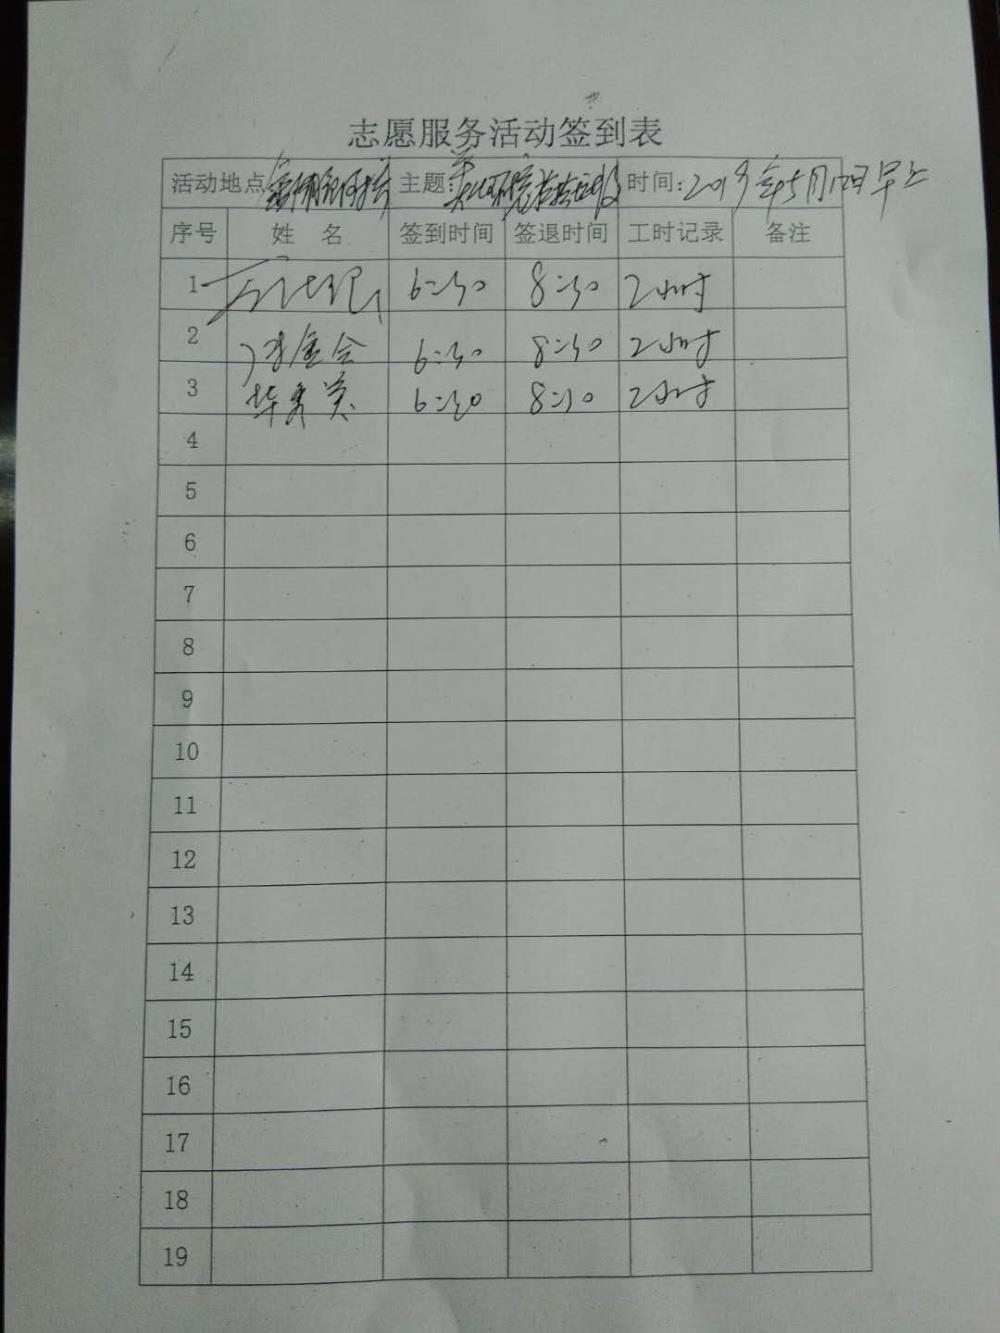 志愿服务活动签到表
活动地点 主题: 美化环境 时间:2019年5月 日早上
序号 姓 名 签到时间 签退时间 工时记录 备注
1 6:30 8:30 2小时
2 金会 6:30 8:30 2小时
3 华秀英 6:30 8:30 2小时
4
5
6
7
8
9
10
11
12
13
14
15
16
17
18
19